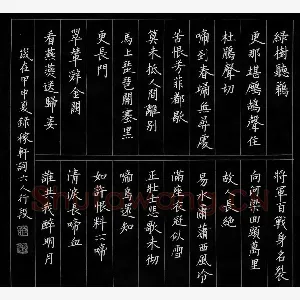 綠樹聽鵜鴂
更那堪鷓鴣聲住
杜鵑聲切
啼到春歸無尋處
苦恨芳菲都歇
算未抵人間離別
馬上琵琶關塞黑
更長門
翠輦辭金闕
看燕燕送歸妾
將軍百戰身名裂
向河梁回頭萬里
故人長絕
易水蕭蕭西風冷
滿座衣冠似雪
正壯士悲歌未徹
啼鳥還知
如許恨料不啼
清淚長啼血
誰共我醉明月
歲在甲申夏錄稼軒詞